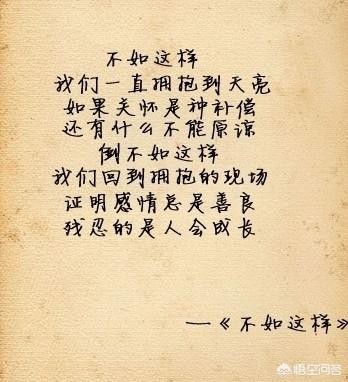 不如这样
我们一直拥抱到天亮
如果关怀是种补偿
还有什么不能原谅
倒不如这样
我们回到拥抱的现场
证明感情总是善良
残忍的是人会成长
—《不如这样》
悟空问答